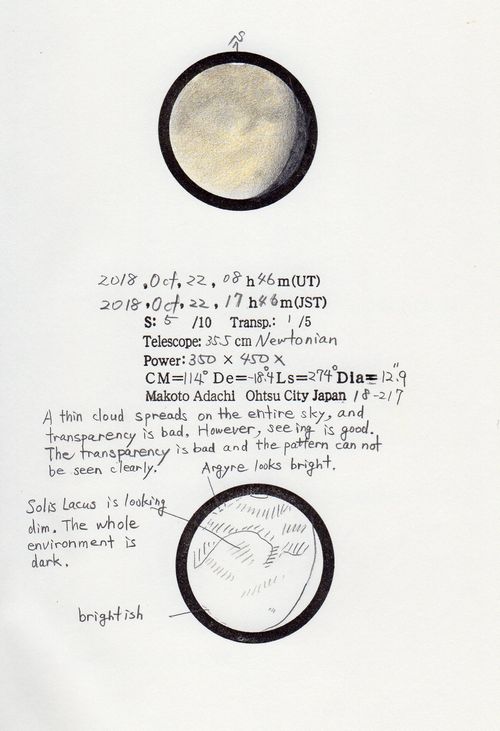 S
2018, Oct, 22, 08h46m(UT)
2018, Oct, 22, 17h46m(JST)
S: 5 /10 Transp.: 1 /5
Telescope: 355 cm Newtonian
Power: 350 × 450 ×
CM=114° De=-18.4° Ls=274° Dia=12.9"
Makoto Adachi Ohtsu City Japan 18-217
A thin cloud spreads on the entire sky, and
transparency is bad. However, seeing is good.
The transparency is bad and the pattern can not
be seen clearly.
Argyre looks bright.
Solis Lacus is looking
dim. The whole
environment is
dark.
brightish